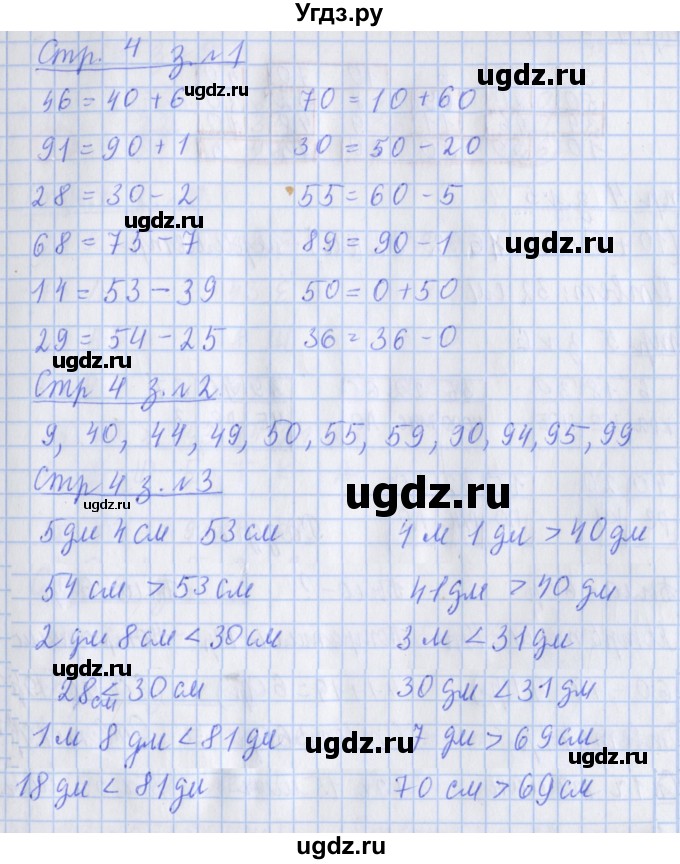 Угдз.ру
Стр. 4 з. №1
46 = 40 + 6 70 = 10 + 60
ugdz.ru ugdz.ru
91 = 90 + 1 30 = 50 - 20
28 = 30 - 2 55 = 60 - 5
ugdz.ru
68 = 75 - 7 89 = 90 - 1
ugdz.ru
14 = 53 - 39 50 = 0 + 50
29 = 54 - 25 36 = 36 - 0
ugdz.ru
Стр 4 з. №2
9, 40, 44, 49, 50, 55, 59, 90, 94, 95, 99
Стр 4 з. №3
ugdz.ru ugdz.ru
5 дм 4 см 53 см 4 м 1 дм > 40 дм
54 см > 53 см 41 дм > 40 дм
2 дм 8 см < 30 см 3 м < 31 дм
ugdz.ru
28 см < 30 см 30 дм < 31 дм
1 м 8 дм < 81 дм 7 дм > 69 см
ugdz.ru ugdz.ru
18 дм < 81 дм 70 см > 69 см
ugdz.ru